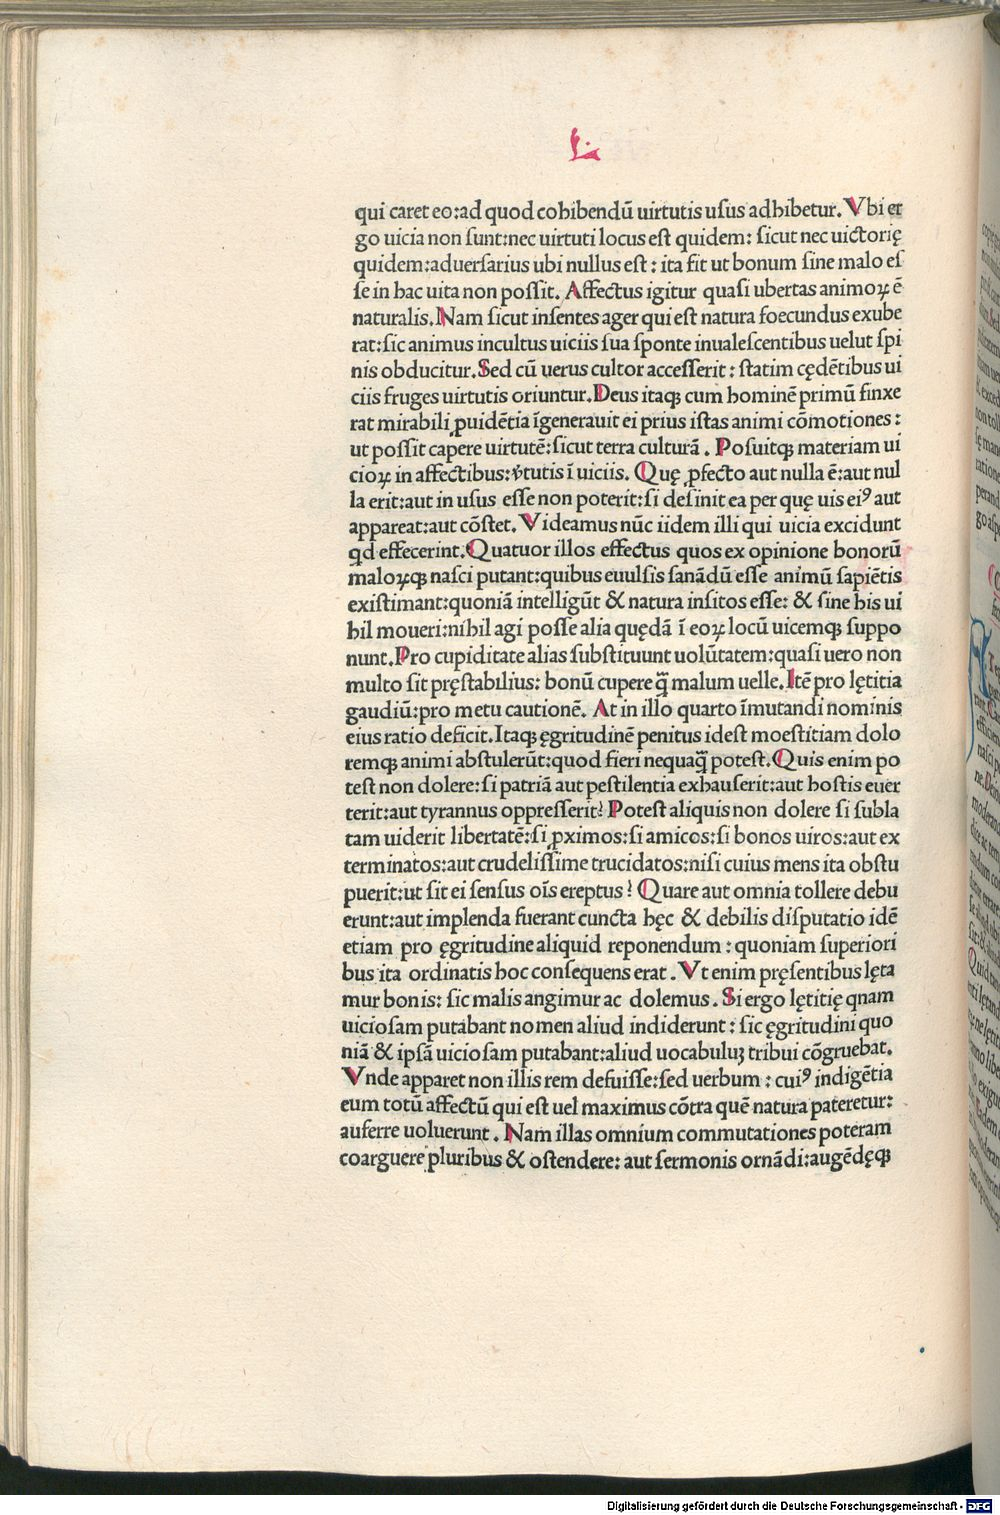 L.
qui caret eo:ad quod cohibendū uirtutis uſus adhibetur. Vbi er
go uicia non ſunt:nec uirtuti locus eſt quidem: ſicut nec uictorię
quidem:aduerſarius ubi nullus eſt: ita fit ut bonum ſine malo eſ
ſe in hac uita non poſſit. Affectus igitur quaſi ubertas animoꝝ ē
naturalis. Nam ſicut inſentes ager qui eſt natura foecundus exube
rat:ſic animus incultus uiciis ſua ſponte inualeſcentibus uelut ſpi
nis obducitur. Sed cū uerus cultor acceſſerit: ſtatim cędētibus ui
ciis fruges uirtutis oriuntur. Deus itaqꝫ cum hominē primū finxe
rat mirabili ꝓuidētia īgenerauit ei prius iſtas animi cōmotiones:
ut poſſit capere uirtutē:ſicut terra culturā. Poſuitqꝫ materiam ui
cioꝝ in affectibus:v̄tutis ī uiciis. Quę ꝓfecto aut nulla ē:aut nul
la erit:aut in uſus eſſe non poterit:ſi deſinit ea per quę uis eiꝰ aut
appareat:aut cōſtet. Videamus nūc iidem illi qui uicia excidunt
qd effecerint. Quatuor illos effectus quos ex opinione bonorū
maloꝝqꝫ naſci putant:quibus euulſis ſanādū eſſe animū ſapiētis
exiſtimant:quoniā intelligūt & natura inſitos eſſe: & ſine his ui
hil moueri:nihil agi poſſe alia quędā ī eoꝝ locū uicemqꝫ ſuppo
nunt. Pro cupiditate alias ſubſtituunt uolūtatem:quaſi uero non
multo ſit pręſtabilius: bonū cupere q̄ꝫ malum uelle. Itē pro lętitia
gaudiū:pro metu cautionē. At in illo quarto īmutandi nominis
eius ratio deficit. Itaqꝫ ęgritudinē penitus ideſt moeſtitiam dolo
remqꝫ animi abſtulerūt:quod fieri nequaq̄ꝫ poteſt. Quis enim po
teſt non dolere: ſi patriā aut peſtilentia exhauſerit:aut hoſtis euer
terit:aut tyrannus oppreſſerit? Poteſt aliquis non dolere ſi ſubla
tam uiderit libertatē:ſi ꝓximos:ſi amicos:ſi bonos uiros:aut ex
terminatos:aut crudeliſſime trucidatos:niſi cuius mens ita obſtu
puerit:ut ſit ei ſenſus oīs ereptus? Quare aut omnia tollere debu
erunt:aut implenda fuerant cuncta hęc & debilis diſputatio idē
etiam pro ęgritudine aliquid reponendum: quoniam ſuperiori
bus ita ordinatis hoc conſequens erat. Vt enim pręſentibus lęta
mur bonis: ſic malis angimur ac dolemus. Si ergo lętitię qnam
uicioſam putabant nomen aliud indiderunt: ſic ęgritudini quo
niā & ipſā uicioſam putabant:aliud uocabuluꝫ tribui cōgruebat.
Vnde apparet non illis rem defuiſſe:ſed uerbum: cuiꝰ indigētia
eum totū affectū qui eſt uel maximus cōtra quē natura pateretur:
auferre uoluerunt. Nam illas omnium commutationes poteram
coarguere pluribus & oſtendere: aut ſermonis ornādi:augēdęqꝫ
Digitalisierung gefördert durch die Deutsche Forschungsgemeinschaft - DFG